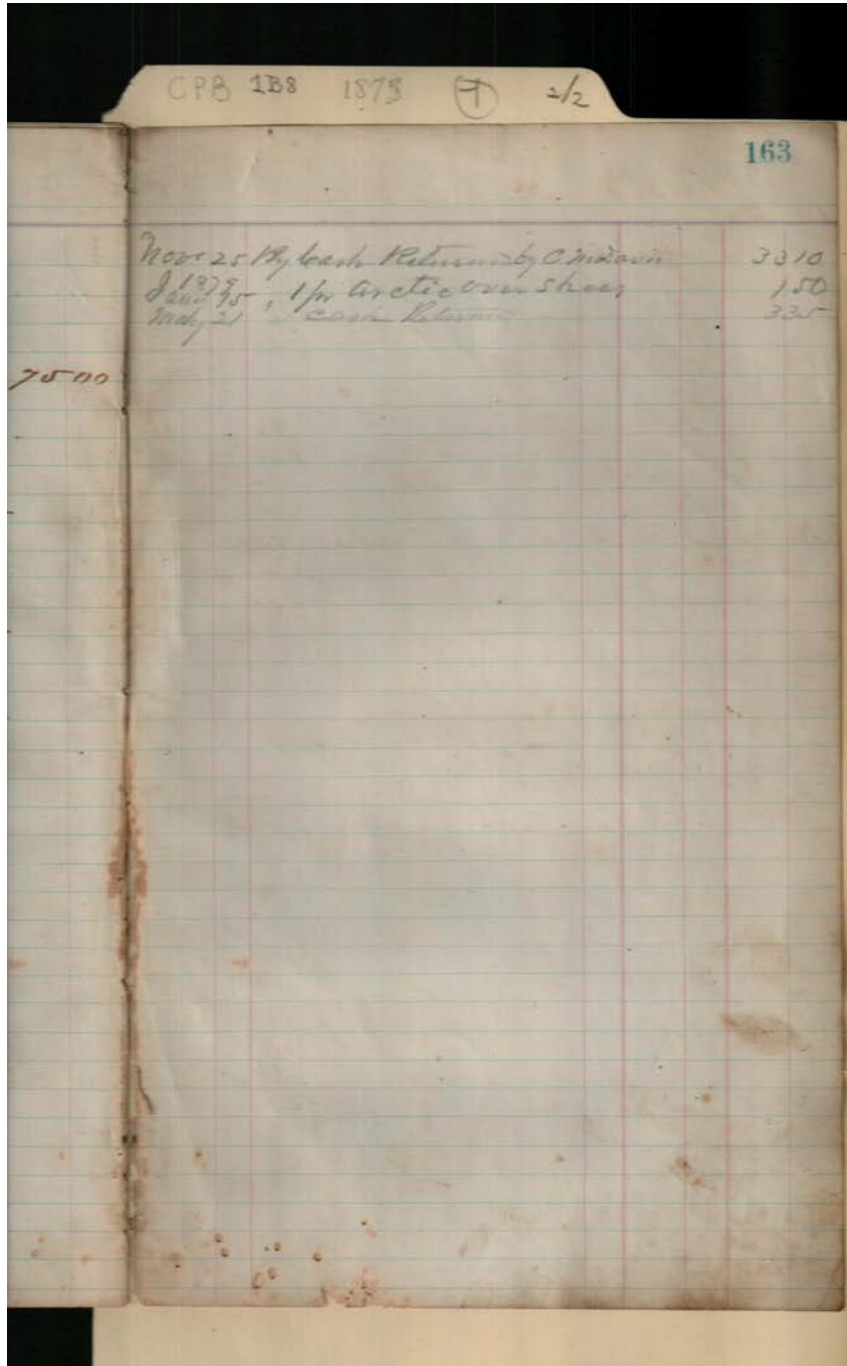 CPB 1B8 1878 1 2/2
163
Nov 25 By Cash Returned by C M Davis 3310
1879
Jany 15 " 1 pr Arctic over Shoes 150
May 21 Cash Returned 335
7500